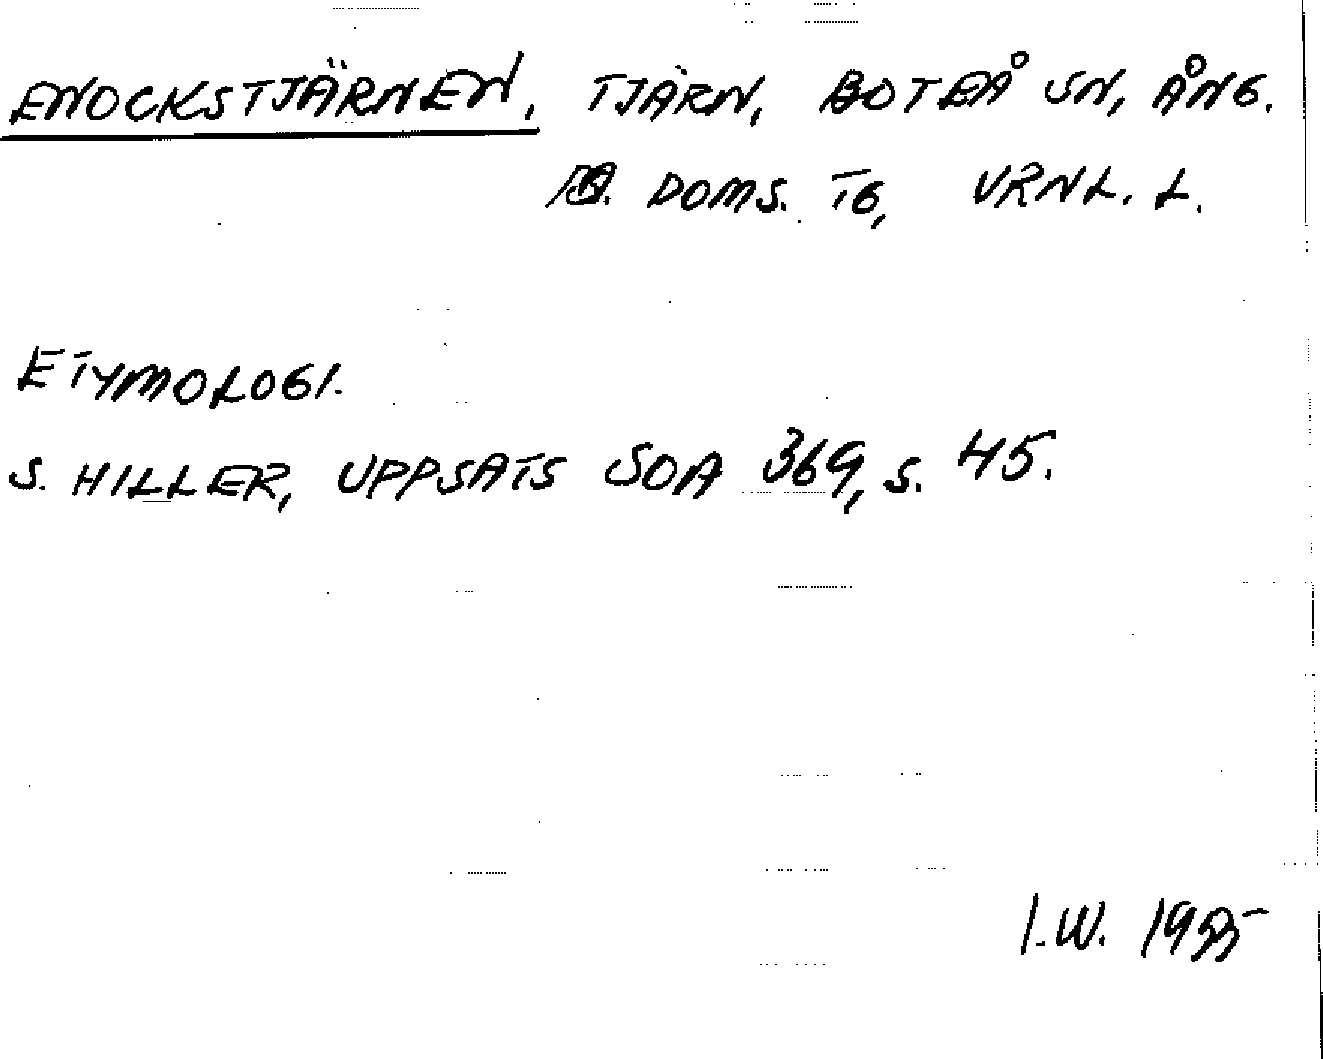 ENOCKSTJÄRNEN, TJÄRN, BOTEÅ SN, ÅNG.
DOMS. TG, VRNL. L.
ETYMOLOGI.
S. HILLER, UPPSATS SOA 369, S. 45.
I.W. 1955